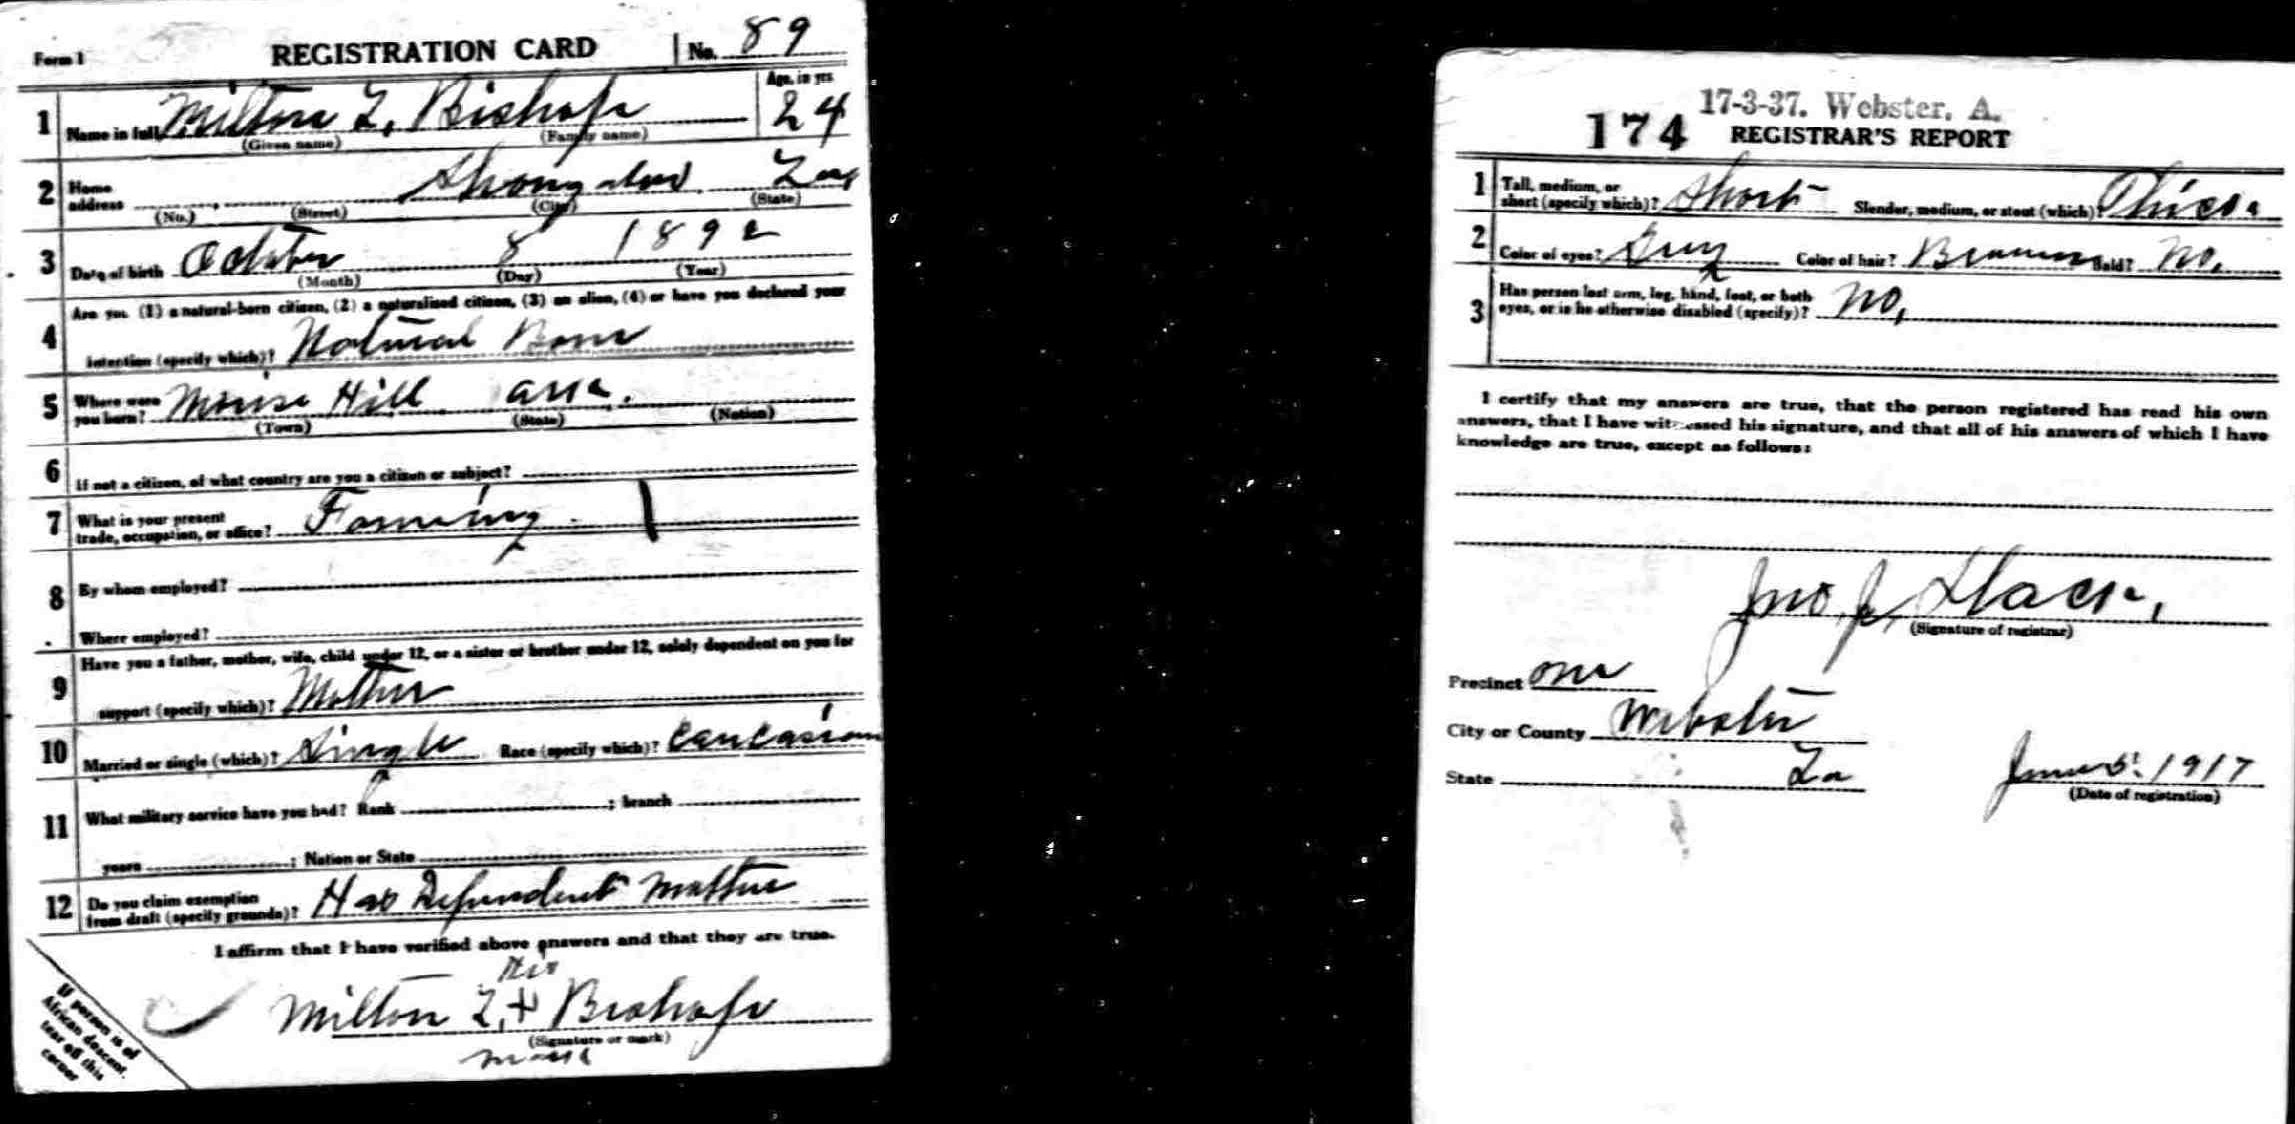 Form 1 REGISTRATION CARD No. 89
1 Name in full Milton L. Bishop Age, in yrs 24
(Given name) (Family name)
2 Home address Shongaloo La
(No.) (Street) (City) (State)
3 Date of birth October 8 1892
(Month) (Day) (Year)
4 Are you (1) a natural-born citizen, (2) a naturalized citizen, (3) an alien, (4) or have you declared your
intention (specify which)? Natural Born
5 Where were you born? Hill Ark.
(Town) (State) (Nation)
6 If not a citizen, of what country are you a citizen or subject?
7 What is your present
trade, occupation, or office? Farming
8 By whom employed?
Where employed?
9 Have you a father, mother, wife, child under 12, or a sister or brother under 12, solely dependent on you for
support (specify which)? Mother
10 Married or single (which)? Single Race (specify which)? Caucasian
11 What military service have you had? Rank ; branch
years ; Nation or State
12 Do you claim exemption
from draft (specify grounds)? Has Dependent Mother
I affirm that I have verified above answers and that they are true.
His
Milton L. + Bishop
(Signature or mark)
mark
If person is of
African descent,
tear off this
corner
17-3-37. Webster, A.
174 REGISTRAR'S REPORT
1 Tall, medium, or
short (specify which)? Short Slender, medium, or stout (which)? Thick
2 Color of eyes? Grey Color of hair? Brown Bald? No.
3 Has person lost arm, leg, hand, foot, or both
eyes, or is he otherwise disabled (specify)? No,
I certify that my answers are true, that the person registered has read his own
answers, that I have witnessed his signature, and that all of his answers of which I have
knowledge are true, except as follows:
Jno. J.
(Signature of registrar)
Precinct one
City or County Webster
State La June 5. 1917
(Date of registration)